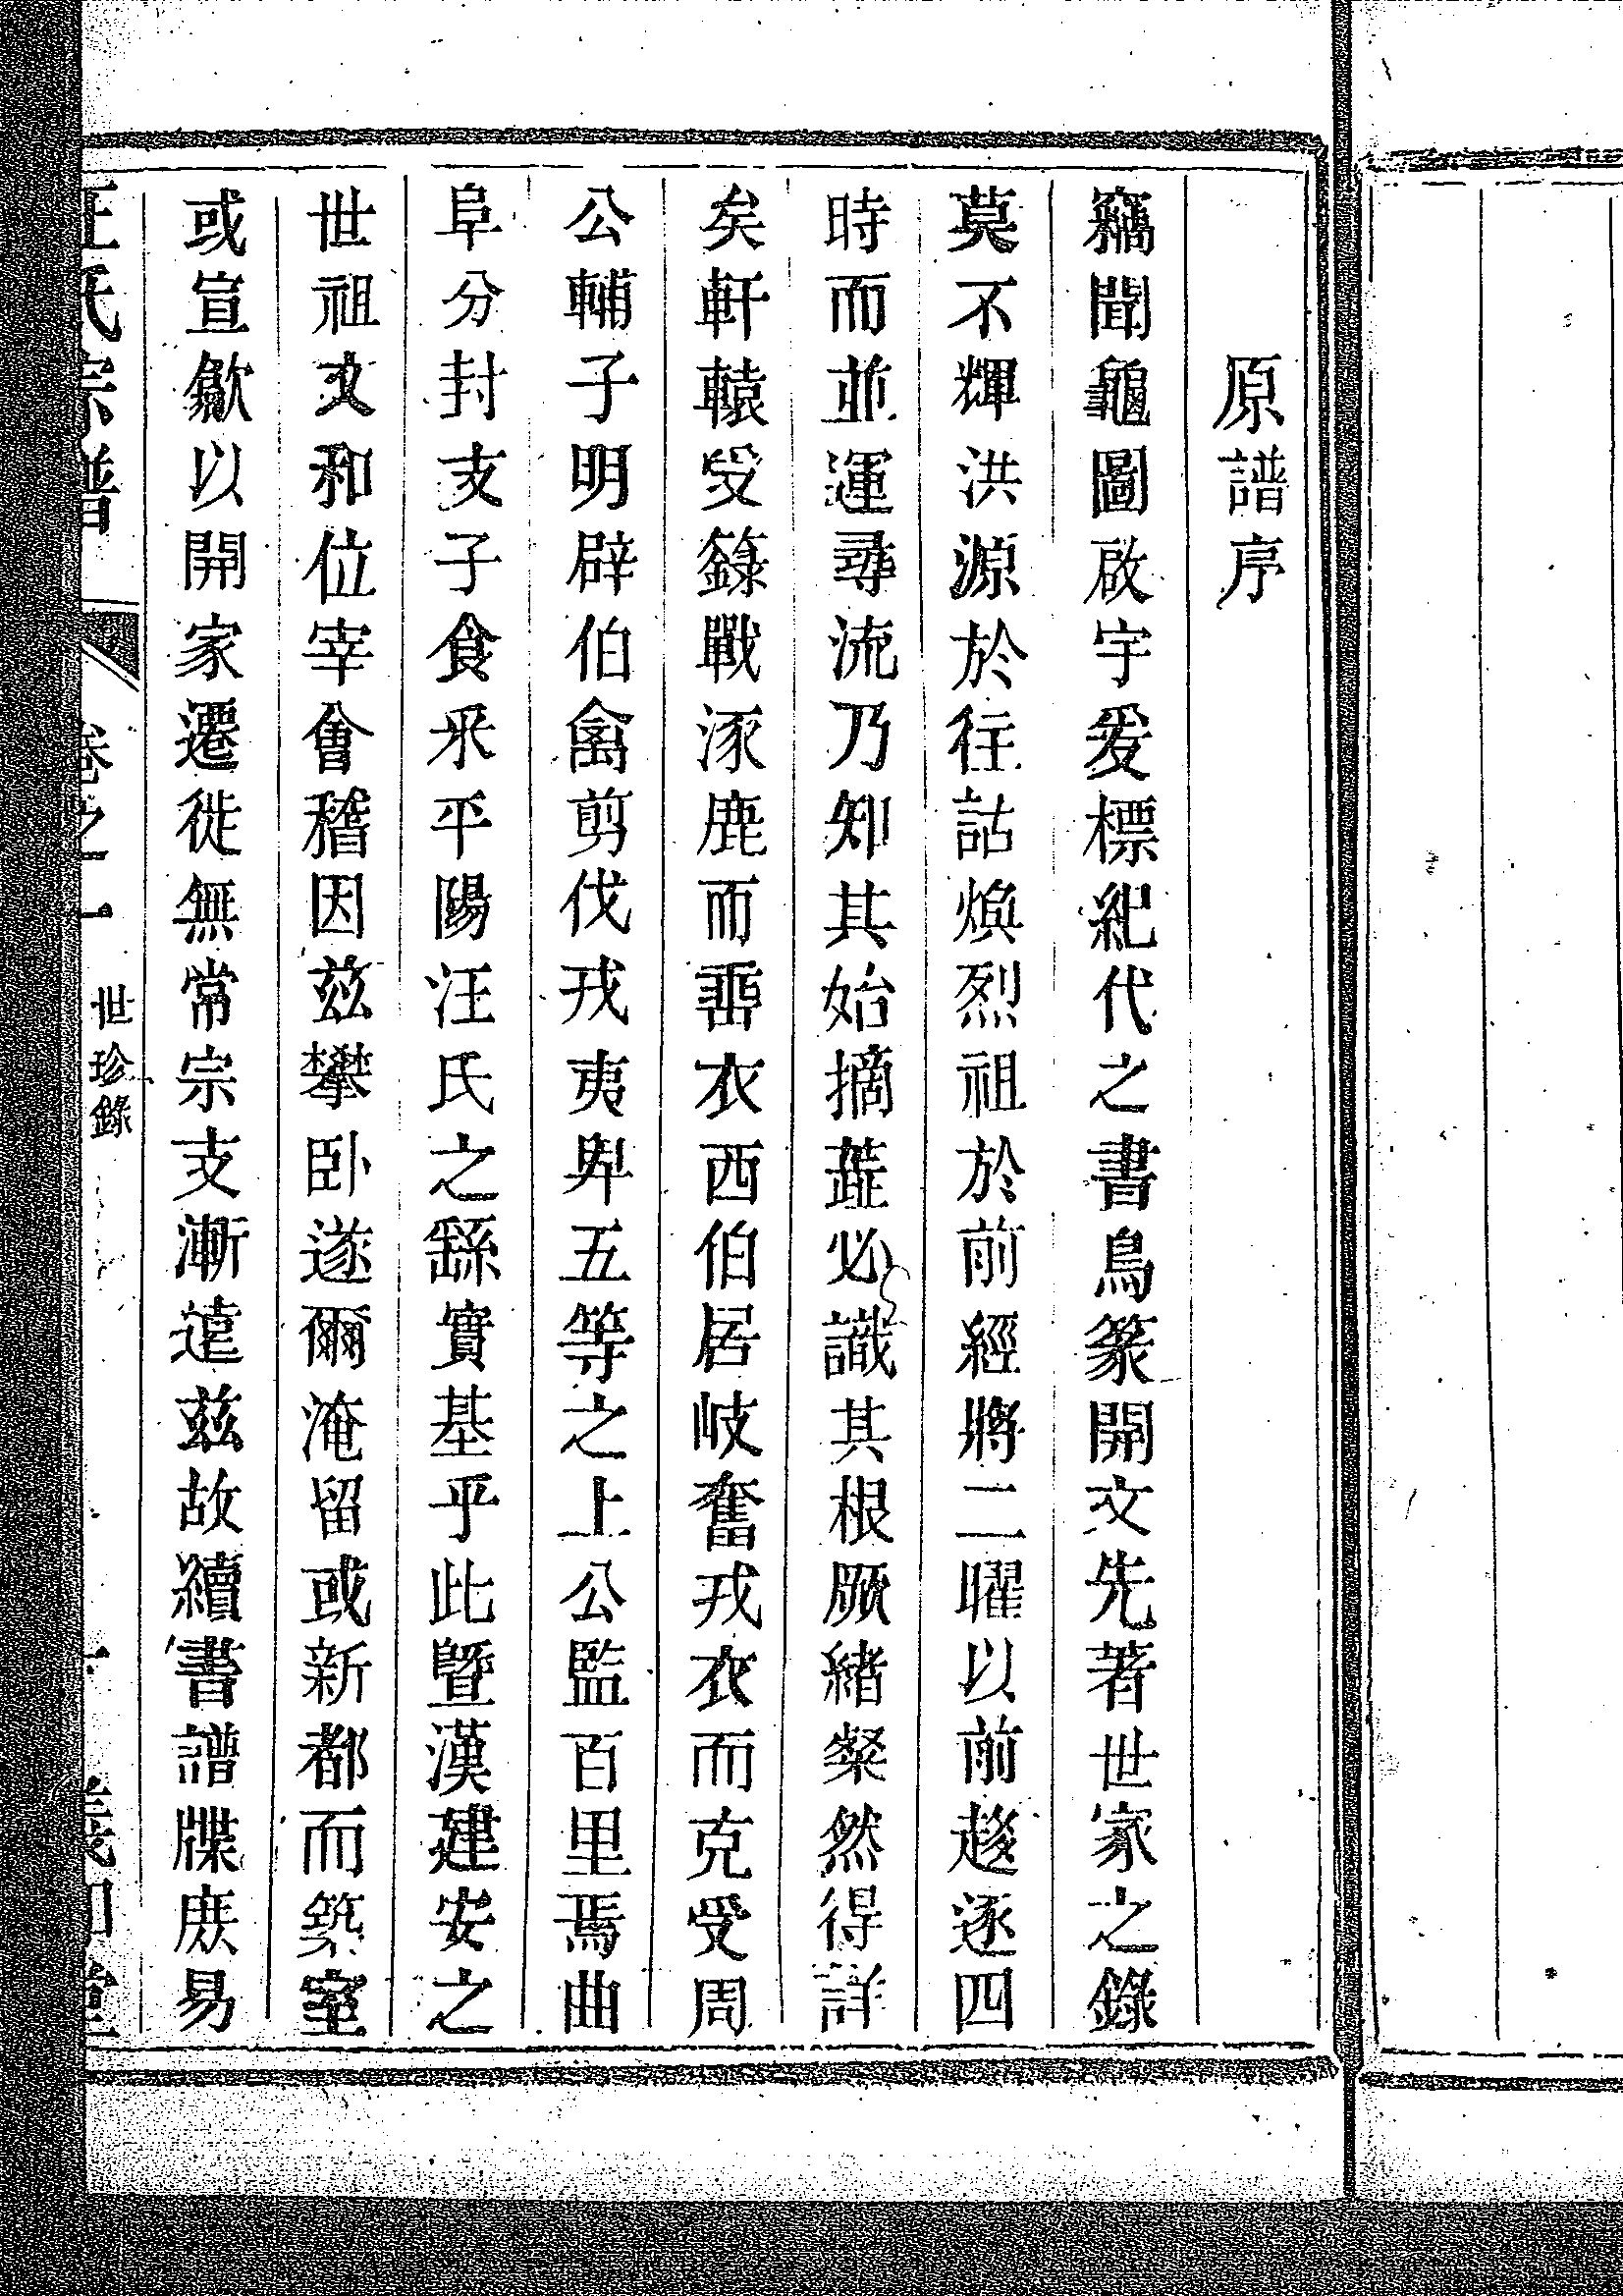 原譜序
竊聞龜圖啟宇爰標紀代之書鳥篆開文先著世家之錄
莫不輝洪源於往詁煥烈祖於前經將二曜以前趍逐四
時而並運尋流乃知其始摘蕋必識其根厥緒粲然得詳
矣軒轅受籙戰涿鹿而垂衣西伯居岐奮戎衣而克受周
公輔子明辟伯禽剪伐戎夷卑五等之上公監百里焉曲
阜分封支子食采平陽汪氏之繇實基乎此暨漢建安之
世祖文和位宰會稽因兹攀卧遂爾淹留或新都而築室
或宣歙以開家遷徙無常宗支漸遠兹故續書譜牒庶易
宗譜
卷之一
世珍錄